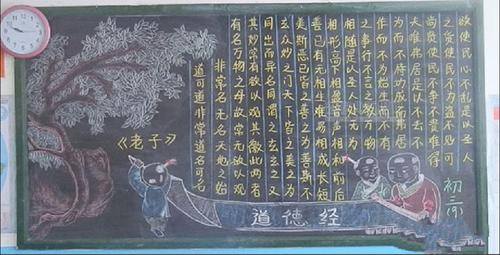 《老子》
道可道非常道名可名
非常名无名天地之始
有名万物之母故常无欲以观
其妙常有欲以观其徼此两者
同出而异名同谓之玄玄之又
玄众妙之门天下皆知美之为
美斯恶已皆知善之为善斯不
善已有无相生难易相成长短
相形高下相盈音声相和前后
相随是以圣人处无为
之事行不言之教万物
作而不为始生而不有
为而不恃功成而弗居
夫唯弗居是以不去不
尚贤使民不争不贵难得
之货使民不为盗不见可
欲使民心不乱是以圣人
道德经
初三